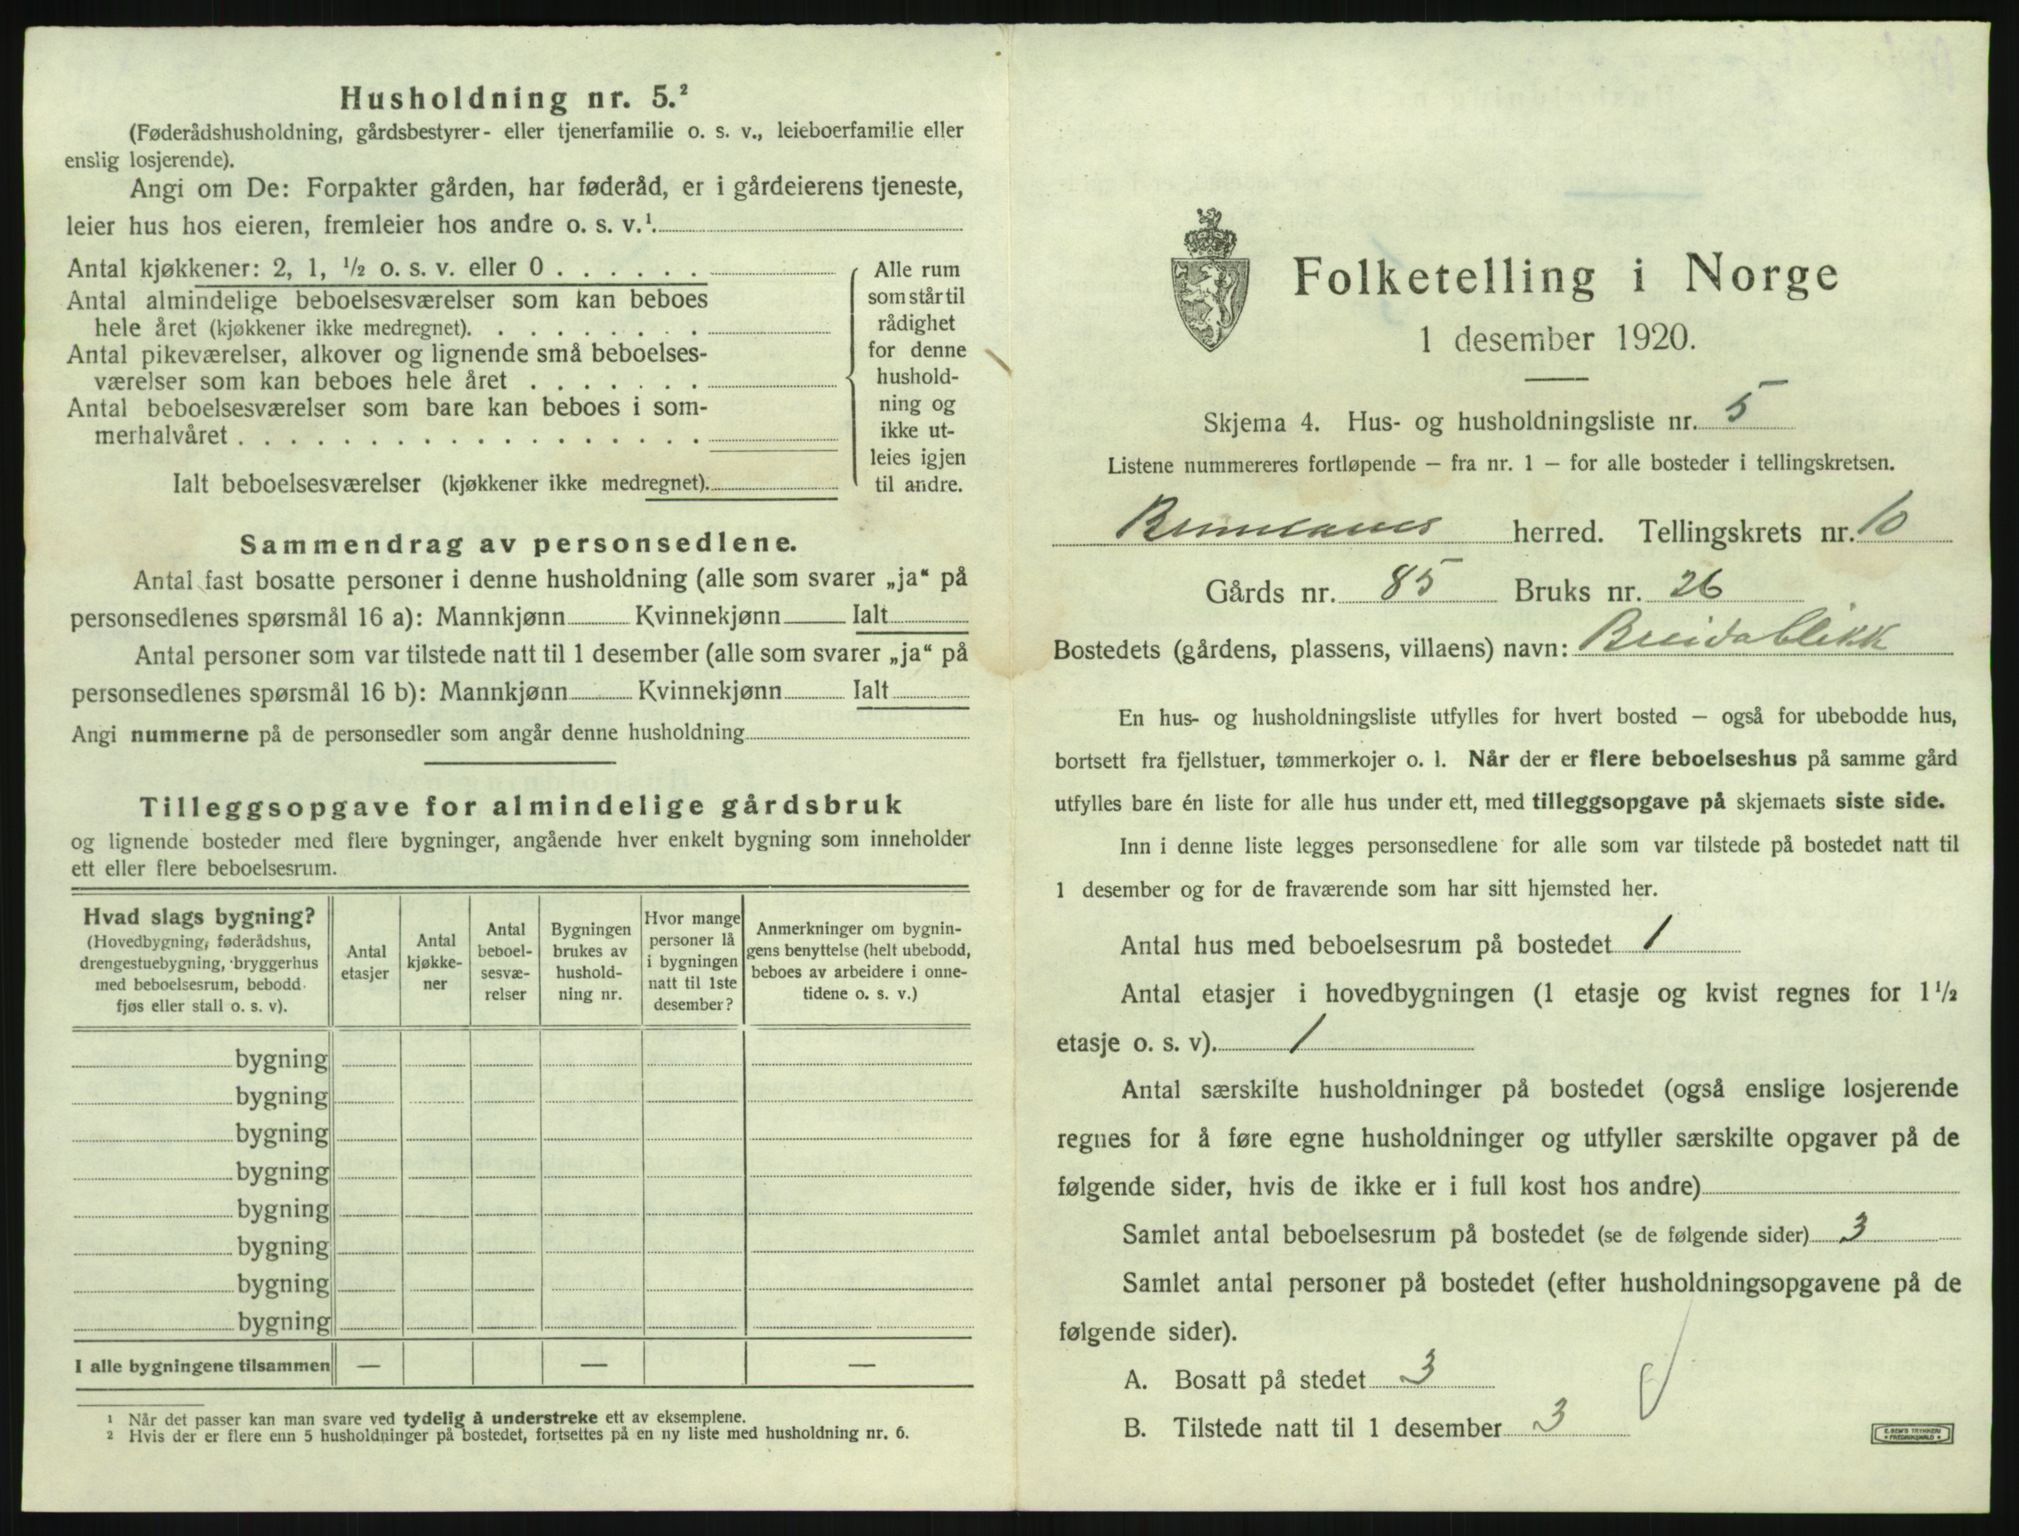 Husholdning nr. 5.²
(Føderådshusholdning, gårdsbestyrer- eller tjenerfamilie o. s. v., leieboerfamilie eller
enslig losjerende).
Angi om De: Forpakter gården, har føderåd, er i gårdeierens tjeneste,
leier hus hos eieren, fremleier hos andre o. s. v.¹
Antal kjøkkener: 2, 1, ½ o. s. v. eller 0 . . . . . .
Antal almindelige beboelsesværelser som kan beboes
hele året (kjøkkener ikke medregnet). . . . . . . . .
Antal pikeværelser, alkover og lignende små beboelses-
værelser som kan beboes hele året . . . . . . .
Antal beboelsesværelser som bare kan beboes i som-
merhalvåret . . . . . . . . . . . . . . . . . .
Ialt beboelsesværelser (kjøkkener ikke medregnet).
Alle rum
som står til
rådighet
for denne
hushold-
ning og
ikke ut-
leies igjen
til andre.
Sammendrag av personsedlene.
Antal fast bosatte personer i denne husholdning (alle som svarer „ja“ på
personsedlenes spørsmål 16 a): Mannkjønn Kvinnekjønn Ialt
Antal personer som var tilstede natt til 1 desember (alle som svarer „ja“ på
personsedlenes spørsmål 16 b): Mannkjønn Kvinnekjønn Ialt
Angi nummerne på de personsedler som angår denne husholdning
Tilleggsopgave for almindelige gårdsbruk
og lignende bosteder med flere bygninger, angående hver enkelt bygning som inneholder
ett eller flere beboelsesrum.
Hvad slags bygning?
(Hovedbygning, føderådshus,
drengestuebygning, bryggerhus
med beboelsesrum, bebodd
fjøs eller stall o. s. v).
Antal
etasjer
Antal
kjøkke-
ner
Antal
beboel-
sesvæ-
relser
Bygningen
brukes av
hushold-
ning nr.
Hvor mange
personer lå
i bygningen
natt til 1ste
desember?
Anmerkninger om bygnin-
gens benyttelse (helt ubebodd,
beboes av arbeidere i onne-
tidene o. s. v.)
bygning
bygning
bygning
bygning
bygning
bygning
bygning
bygning
I alle bygningene tilsammen — — —
¹ Når det passer kan man svare ved tydelig å understreke ett av eksemplene.
² Hvis der er flere enn 5 husholdninger på bostedet, fortsettes på en ny liste med husholdning nr. 6.
Folketelling i Norge
1 desember 1920.
Skjema 4. Hus- og husholdningsliste nr. 5
Listene nummereres fortløpende – fra nr. 1 – for alle bosteder i tellingskretsen.
Brunlanes herred. Tellingskrets nr. 10
Gårds nr. 85 Bruks nr. 26
Bostedets (gårdens, plassens, villaens) navn: Breidablikk
En hus- og husholdningsliste utfylles for hvert bosted – også for ubebodde hus,
bortsett fra fjellstuer, tømmerkojer o. l. Når der er flere beboelseshus på samme gård
utfylles bare én liste for alle hus under ett, med tilleggsopgave på skjemaets siste side.
Inn i denne liste legges personsedlene for alle som var tilstede på bostedet natt til
1 desember og for de fraværende som har sitt hjemsted her.
Antal hus med beboelsesrum på bostedet 1
Antal etasjer i hovedbygningen (1 etasje og kvist regnes for 1½
etasje o. s. v). 1
Antal særskilte husholdninger på bostedet (også enslige losjerende
regnes for å føre egne husholdninger og utfyller særskilte opgaver på de
følgende sider, hvis de ikke er i full kost hos andre)
Samlet antal beboelsesrum på bostedet (se de følgende sider) 3
Samlet antal personer på bostedet (efter husholdningsopgavene på de
følgende sider).
A. Bosatt på stedet 3
B. Tilstede natt til 1 desember 3